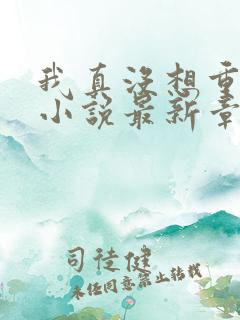 我真没想重
小说最新章
司徒健
未经同意禁止转载